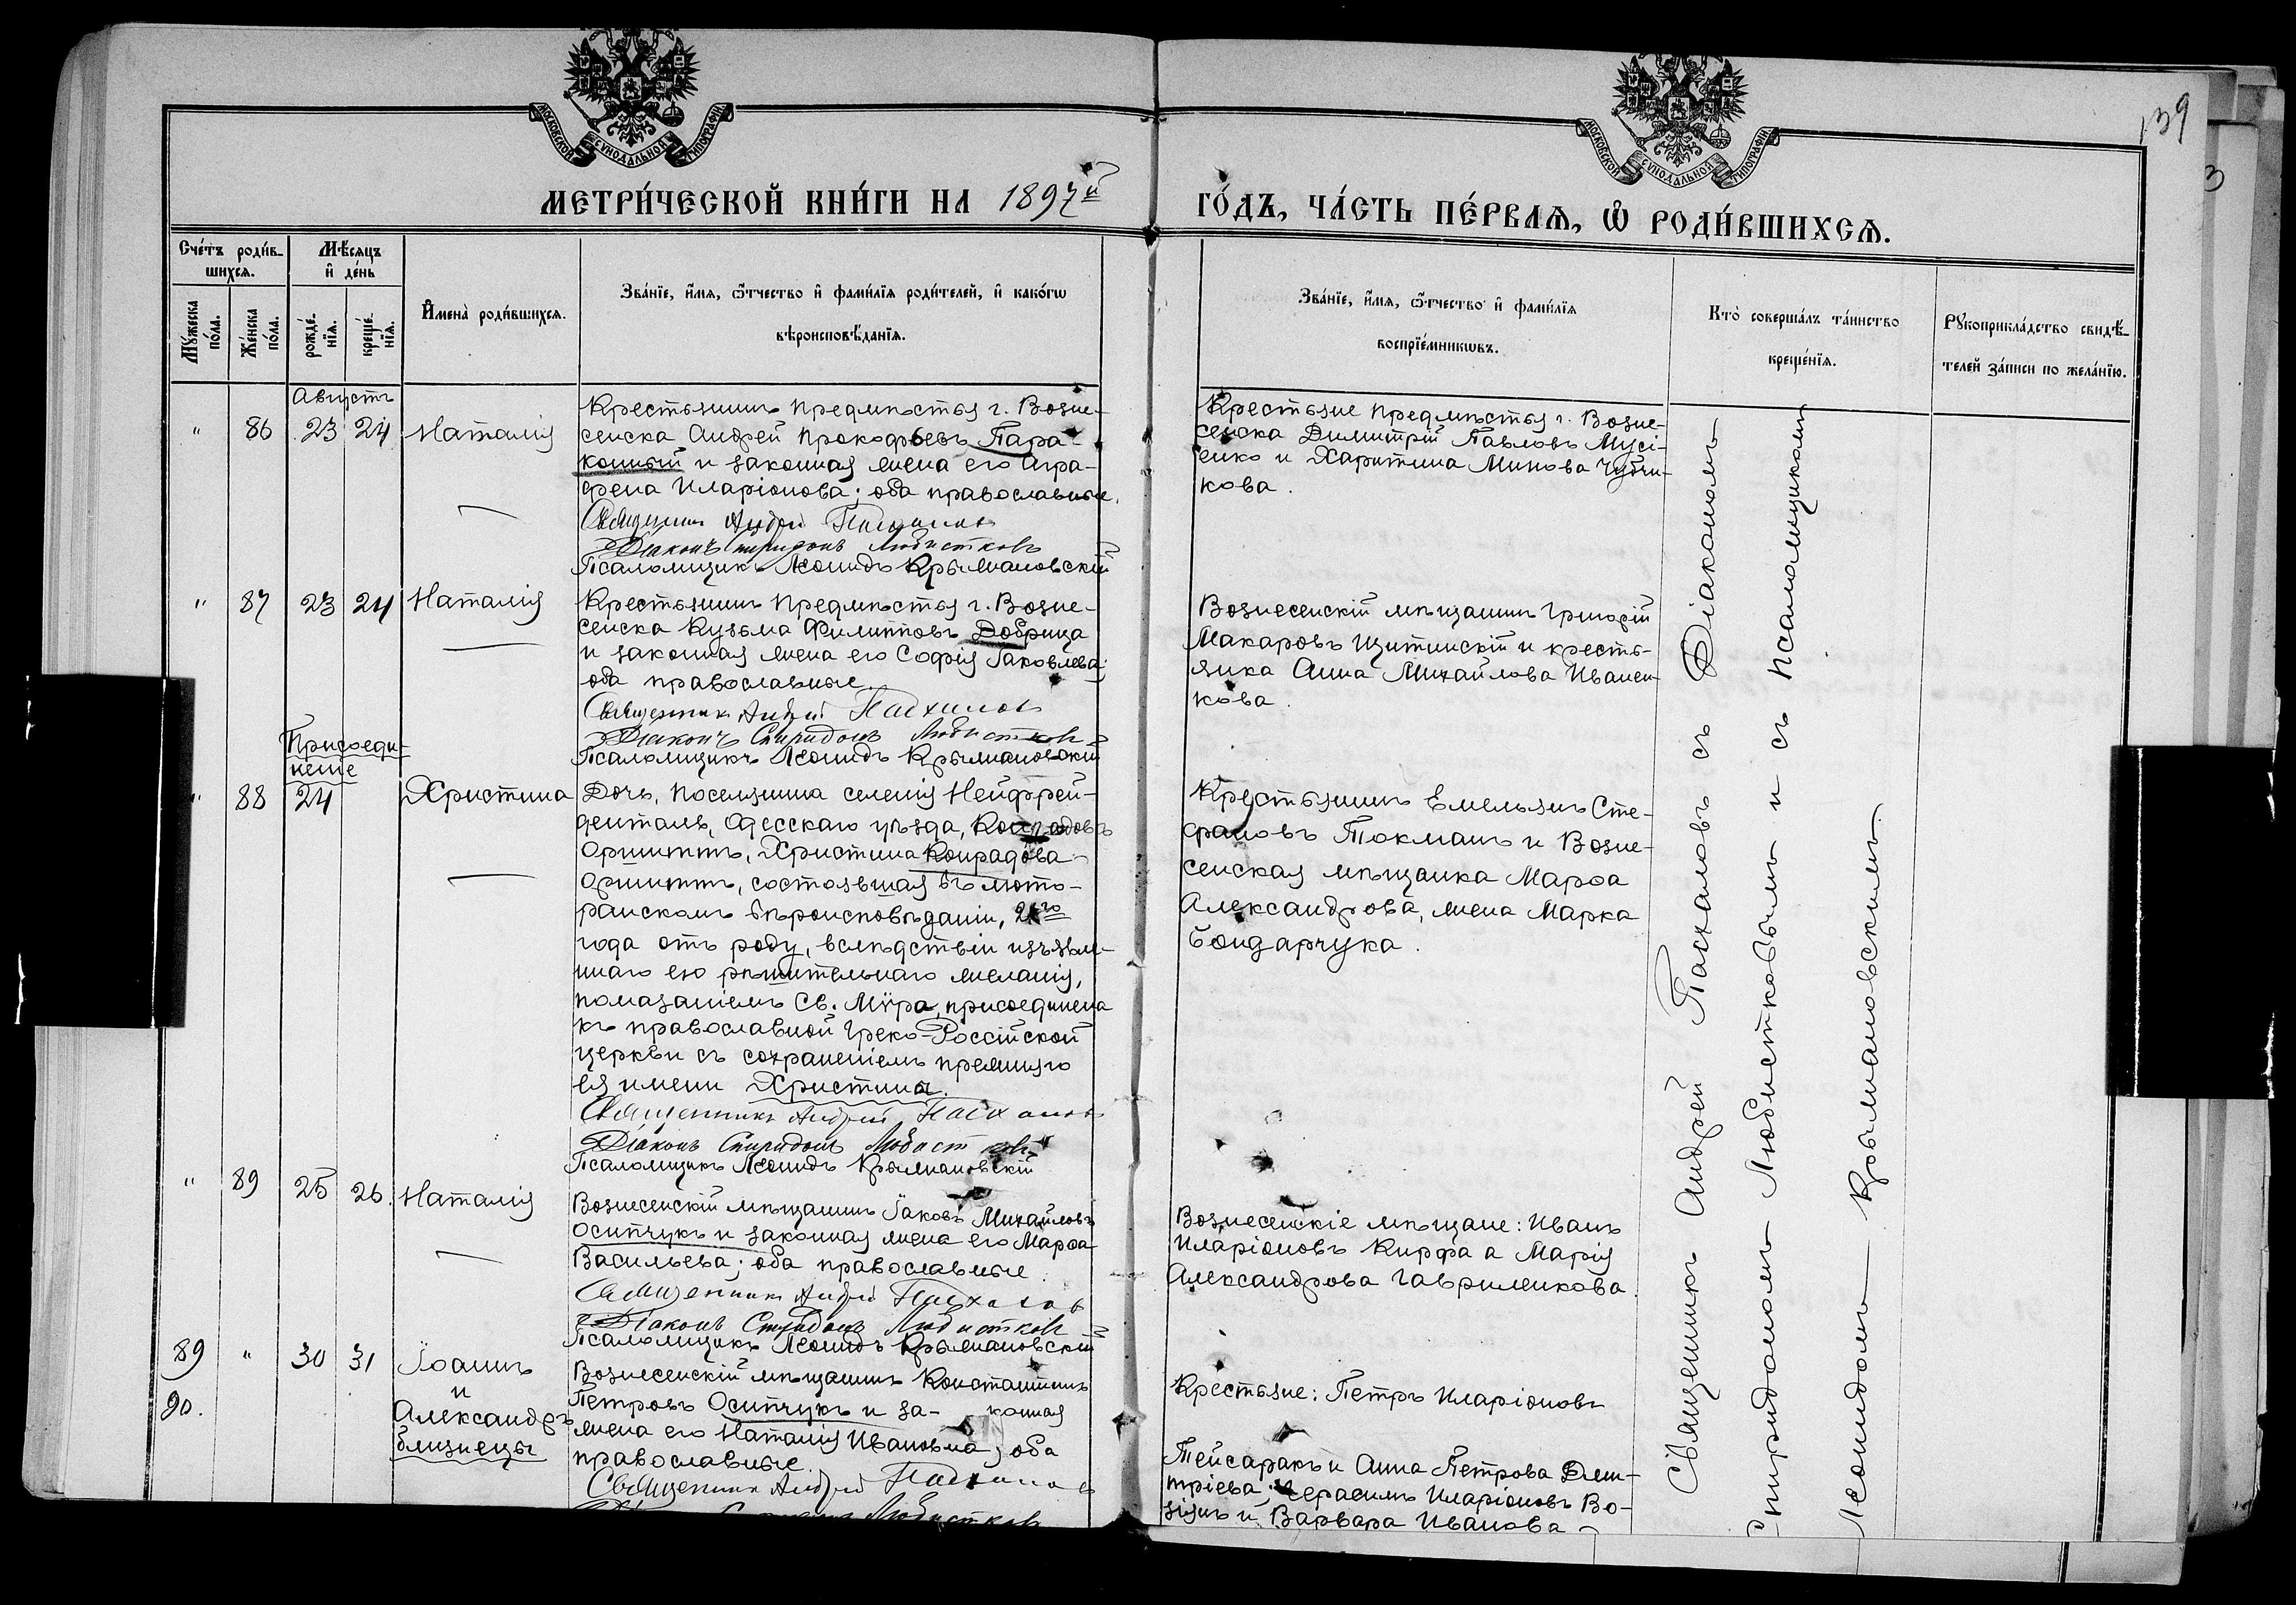 МОСКОВСКОЙ СѴНОДАЛЬНОЙ ТИПОГРАФІИ
МОСКОВСКОЙ СѴНОДАЛЬНОЙ ТИПОГРАФІИ
139
3
МЕТРИ́ЧЕСКОЙ КНИ́ГИ НА 1897й
ГО́ДЪ, ЧА́СТЬ ПЕ́РВАѦ, Ѡ҆ РОДИ́ВШИХСѦ.
Сче́тъ роди́в-
шихсѧ.
Мꙋ́жеска по́ла.
Же́нска по́ла.
Мѣ́сѧцъ
и҆ де́нь
рожде́-
нїѧ.
креще́-
нїѧ.
И҆мена̀ роди́вшихсѧ.
Зва́нїе, и҆́мѧ, ѻ҆́тчество и҆ фами́лїѧ роди́телей, и҆ како́гѡ
вѣроисповѣ́данїѧ.
Зва́нїе, и҆́мѧ, ѻ҆́тчество и҆ фами́лїѧ
воспрїе́мникѡвъ.
Кто̀ соверша́лъ та́инство
креще́нїѧ.
Рꙋкоприкла́дство свидѣ́-
телей за́писи по жела́нїю.
Августъ
" 86 23 24 Наталія
Крестьянинъ предмѣстья г. Возне-
сенска Андрей Прокофьевъ Пара-
конный и законная жена его Агра-
фена Иларіонова; оба православные.
Священникъ Андрей Пасхаловъ
Діаконъ Спиридонъ Любистковъ
Псаломщикъ Леонидъ Крыжановскій
Крестьяне предмѣстья г. Возне-
сенска Димитрій Павловъ Мусі-
енко и Харитина Минова Чубчи-
кова.
" 87 23 24 Наталія
Крестьянинъ предмѣстья г. Возне-
сенска Кузьма Филипповъ Добрица
и законная жена его Софія Іаковлева;
оба православные.
Священникъ Андрей Пасхаловъ
Діаконъ Спиридонъ Любистковъ
Псаломщикъ Леонидъ Крыжановскій
Вознесенскій мѣщанинъ Григорій
Макаровъ Щитинскій и кресть-
янка Анна Михайлова Иванен-
кова.
Присоеди-
неніе
" 88 24 Христина
Дочь, поселянина селенія Нейфрей-
денталь, Одесскаго уѣзда, Конрадовъ
Ортиттъ, Христина Конрадова
Ортиттъ, состоявшая въ люте-
ранскомъ вѣроисповѣданіи, 21го
года отъ роду, вслѣдствіи изъявлен-
наго ею рѣшительнаго желанія,
помазаніемъ Св. Мѵра, присоединена
къ православной Греко-Россійской
церкви съ сохраненіемъ прежняго
ея имени Христина.
Священникъ Андрей Пасхаловъ
Діаконъ Спиридонъ Любистковъ
Псаломщикъ Леонидъ Крыжановскій
Крестьянинъ Емельянъ Сте-
фановъ Токманъ и Возне-
сенская мѣщанка Марѳа
Александрова, жена Марка
Бондарчука.
" 89 25 26. Наталія
Вознесенскій мѣщанинъ Іаковъ Михайловъ
Осипчукъ и законная жена его Марѳа
Васильева; оба православные.
Священникъ Андрей Пасхаловъ
Діаконъ Спиридонъ Любистковъ
Псаломщикъ Леонидъ Крыжановскій
Вознесенскіе мѣщане: Иванъ
Иларіоновъ Кирфа а Марія
Александрова Гавриленкова.
89 " 30 31 Іоаннъ
и
90. Александръ
близнецы
Вознесенскій мѣщанинъ Константинъ
Петровъ Осипчукъ и за- конная
жена его Наталія Ивановна; оба
православные.
Священникъ Андрей Пасхаловъ
Любистковъ
Крестьяне: Петръ Иларіоновъ
Тейсаракъ и Анна Петрова Дми-
тріева; Герасимъ Иларіоновъ Во-
зіянъ и Варвара Иванова
Священникъ Андрей Пасхаловъ съ Діакономъ
Спиридономъ Любистковымъ и съ Псаломщикомъ
Леонидомъ Крыжановскимъ.